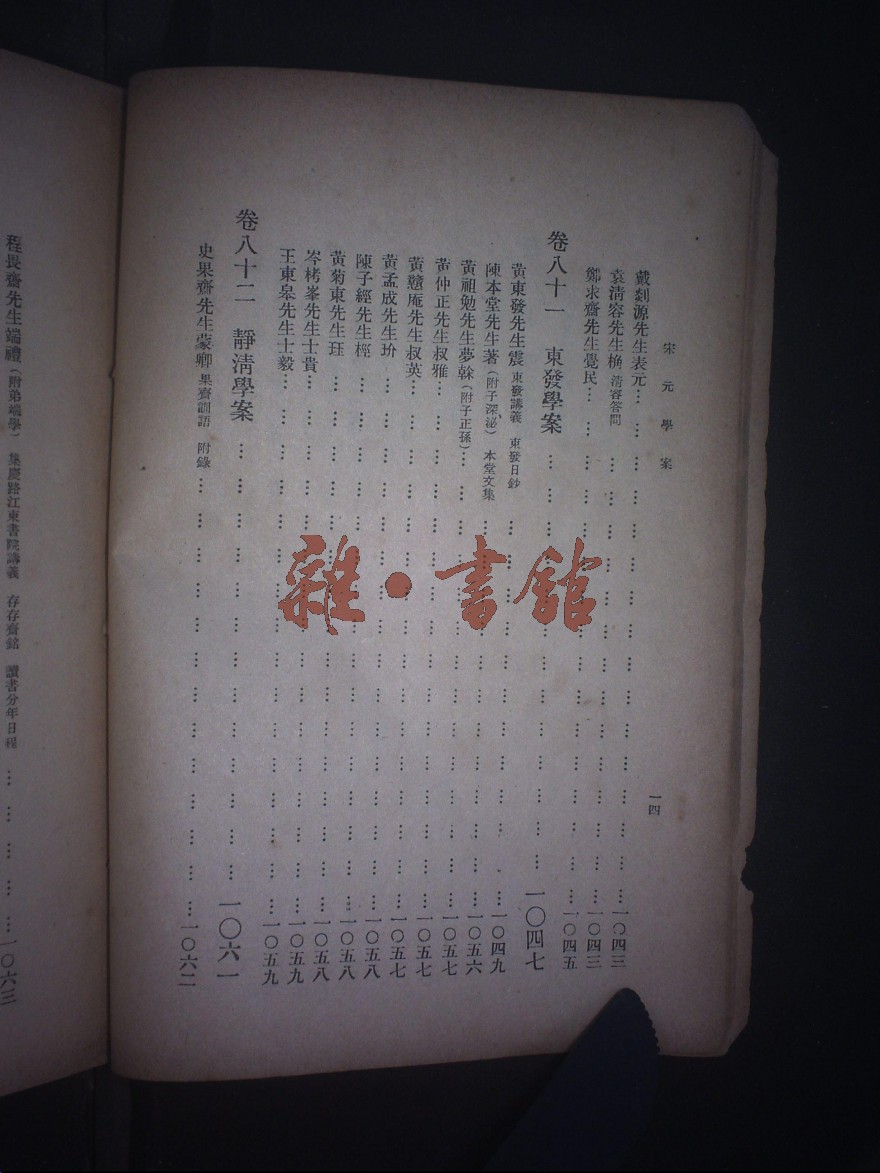 宋元學案
一四
戴剡源先生表元… … … … … … … … … … … … …一〇四三
袁淸容先生桷 淸容答問… … … … … … … … … … …一〇四三
鄭求齋先生覺民… … … … … … … … … … … … …一〇四五
卷八十一 東發學案… … … … … … … … … … …一〇四七
黃東發先生震 東發講義 東發日鈔… … … … … … … … …一〇四九
陳本堂先生著(附子深泌) 本堂文集… … … … … … … … …一〇五六
黃祖勉先生夢榦(附子正孫)… … … … … … … … … …一〇五七
黃仲正先生叔雅… … … … … … … … … … … … …一〇五七
黃戇庵先生叔英… … … … … … … … … … … … …一〇五七
黃孟成先生玠… … … … … … … … … … … … …一〇五七
陳子經先生桱… … … … … … … … … … … … …一〇五八
黃菊東先生玨… … … … … … … … … … … … …一〇五八
岑栲峯先生士貴… … … … … … … … … … … … …一〇五八
王東皋先生士毅… … … … … … … … … … … … …一〇五九
卷八十二 靜淸學案… … … … … … … … … … …一〇六一
史果齋先生蒙卿 果齋訓語 附錄… … … … … … … … … …一〇六二
程畏齋先生端禮(附弟端學) 集慶路江東書院講義 存存齋銘 讀書分年日程… … … … …一〇六三
雜·書館